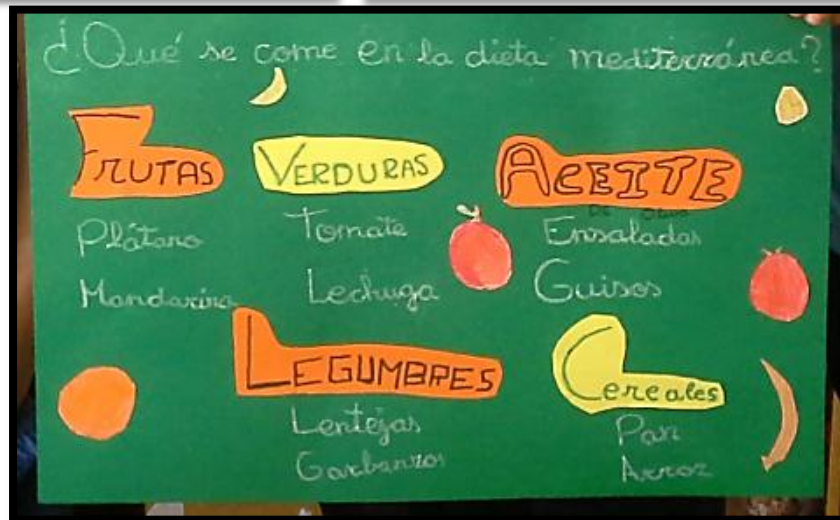 ¿Qué se come en la dieta mediterránea?
FRUTAS
Plátano
Mandarina
VERDURAS
Tomate
Lechuga
ACEITE
De Oliva
Ensaladas
Guisos
LEGUMBRES
Lentejas
Garbanzos
Cereales
Pan
Arroz